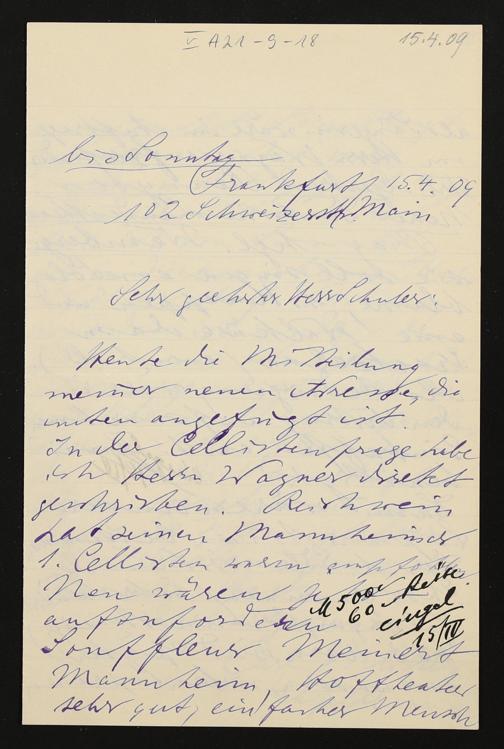 V A21-9-18
15.4.09
bis Sonntag
Frankfurt 15.4.09
102 Schweizerstr. Main
Sehr geehrter Herr Schuler:
Heute die Mitteilung
meiner neuen Adresse, die
unten angefügt ist.
In der Cellistenfrage habe
ich Herrn Wagner direkt
geschrieben. Reichwein
hat seinen Mannheimer
1. Cellisten warm empfohlen.
Neu wären
aufzufordern
Souffleur Meinert
Mannheim Hoftheater
sehr gut, einfacher Mensch
M 500
60 Reise
eingel
15/IV